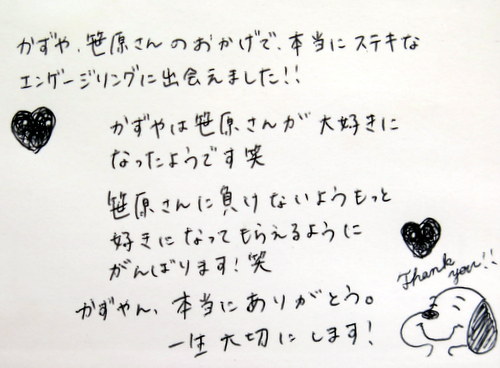 かずや、笹原さんのおかげで、本当にステキな
エンゲージリングに出会えました!!
かずやは笹原さんが大好きに
なったようです笑
笹原さんに負けないようもっと
好きになってもらえるように
がんばります!笑
かずやん、本当にありがとう。
一生大切にします!
Thank
you!!